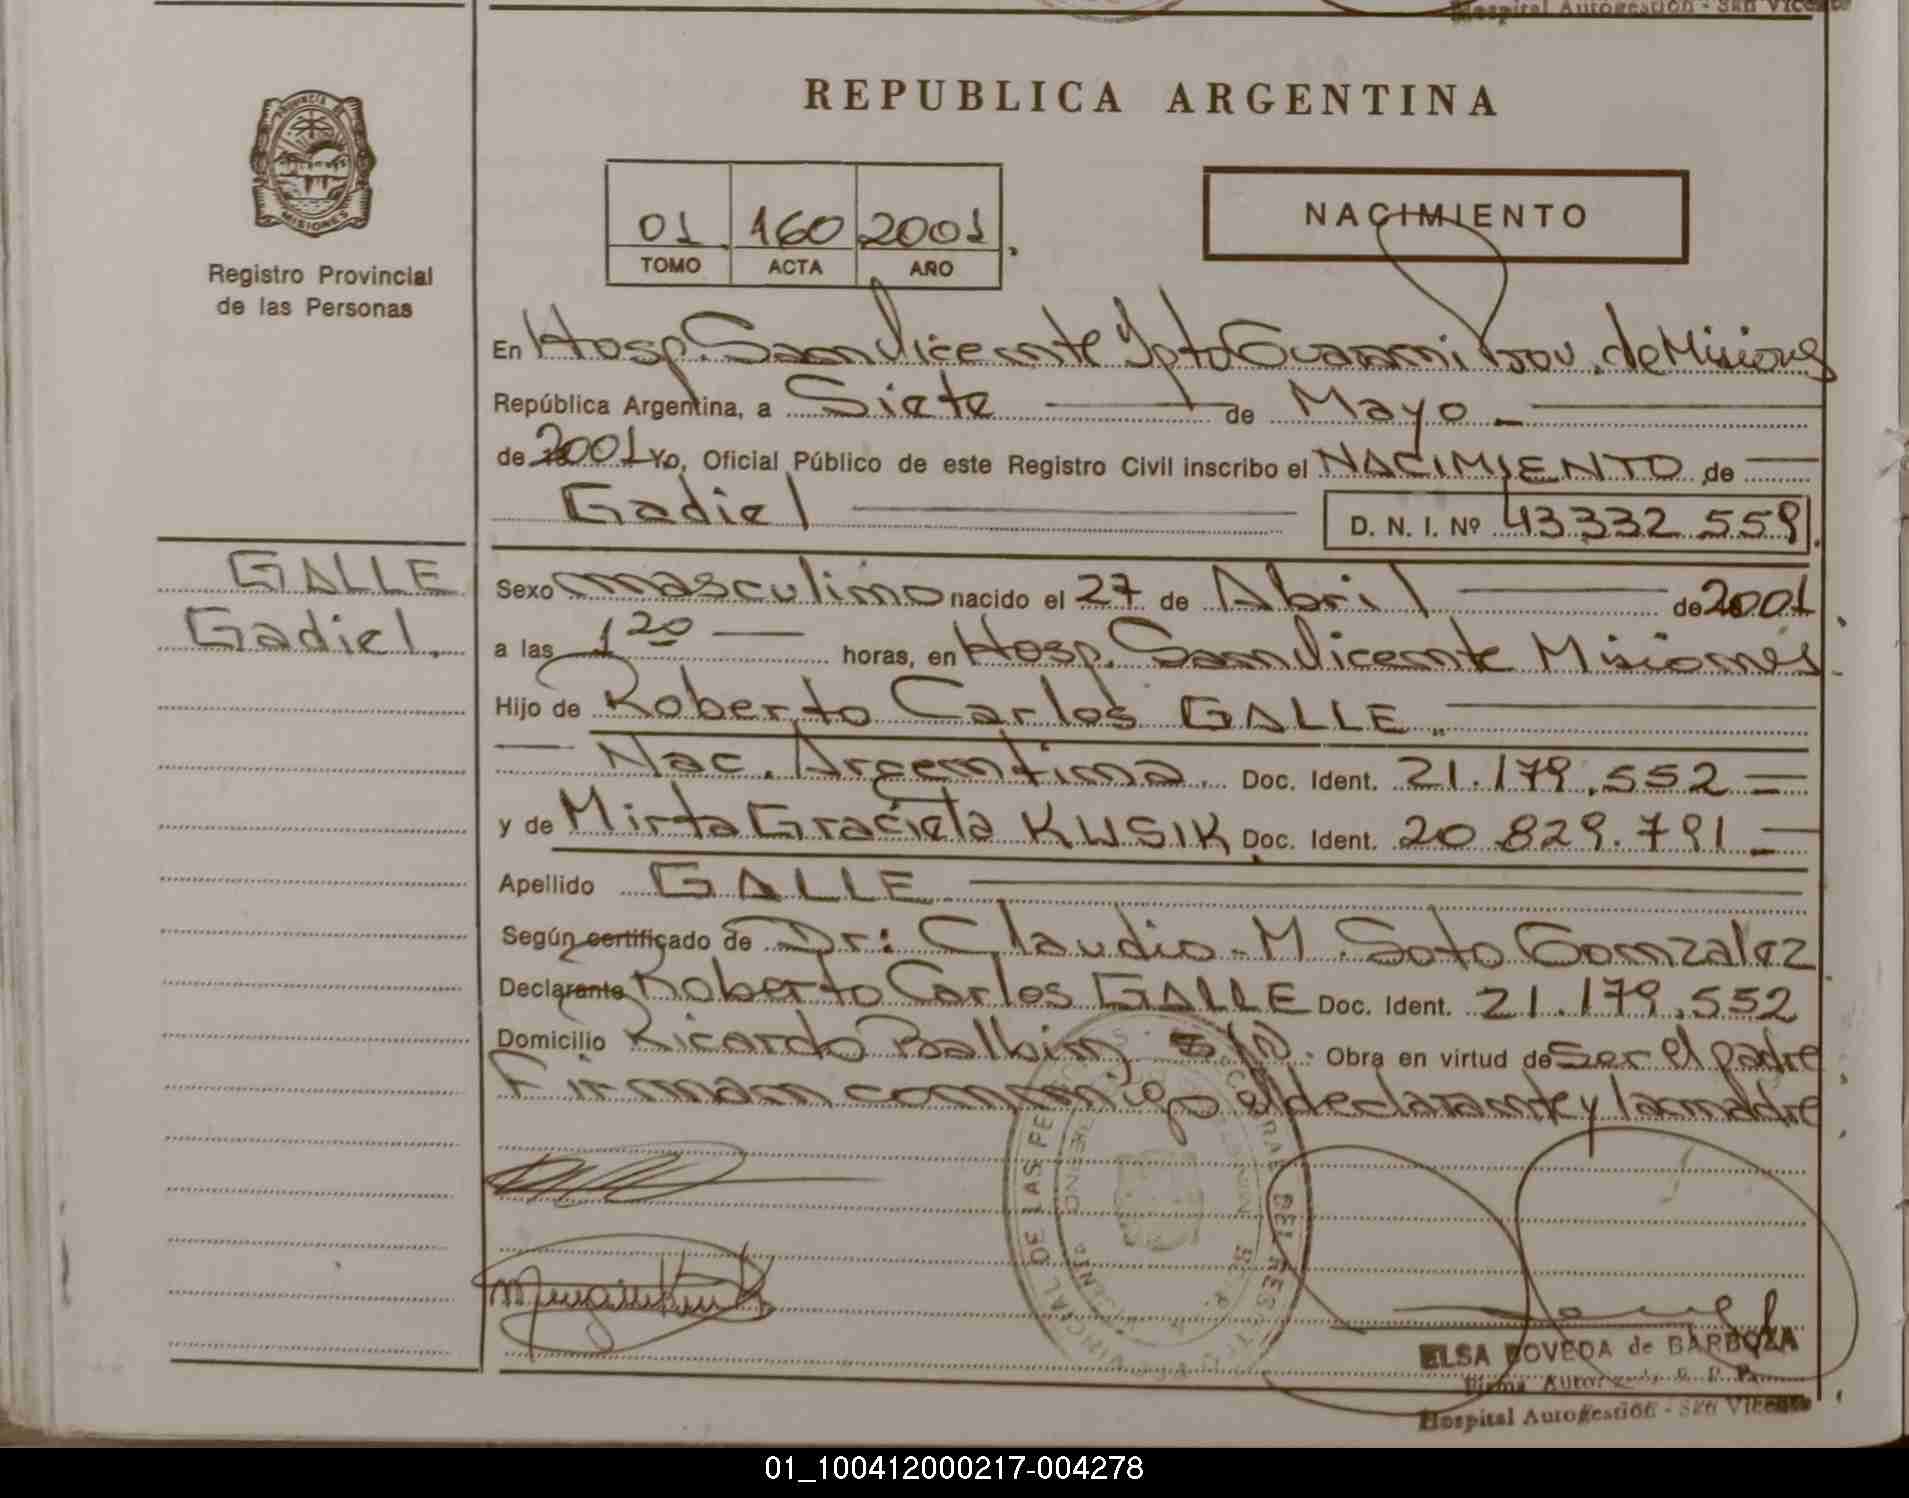 Hospital Autogestión - San Vicente
REPUBLICA ARGENTINA
PROVINCIA DE
MISIONES
Registro Provincial
de las Personas
01 160 2001
TOMO ACTA AÑO
NACIMIENTO
En Hosp. San Vicente Dpto Guarani Prov. de Misiones
República Argentina, a Siete de Mayo
de 2001 Yo, Oficial Público de este Registro Civil inscribo el NACIMIENTO de
Gadiel D. N. I. Nº 43332 559
GALLE
Gadiel.
Sexo masculino nacido el 27 de Abril de 2001
a las 1 20 horas, en Hosp. San Vicente Misiones
Hijo de Roberto Carlos GALLE
Nac. Argentina. Doc. Ident. 21.179.552
y de Mirta Graciela KUSIK Doc. Ident. 20 829.791
Apellido GALLE
Según certificado de Dr: Claudio - M. Soto Gonzalez
Declarante Roberto Carlos GALLE Doc. Ident. 21.179.552
Domicilio Ricardo Balbin S/N. Obra en virtud de ser el padre
Firman conmigo el declarante y la madre
ELSA BOVEDA de BARBOZA
Firma
Hospital Autogestión - San Vicente
01_100412000217-004278